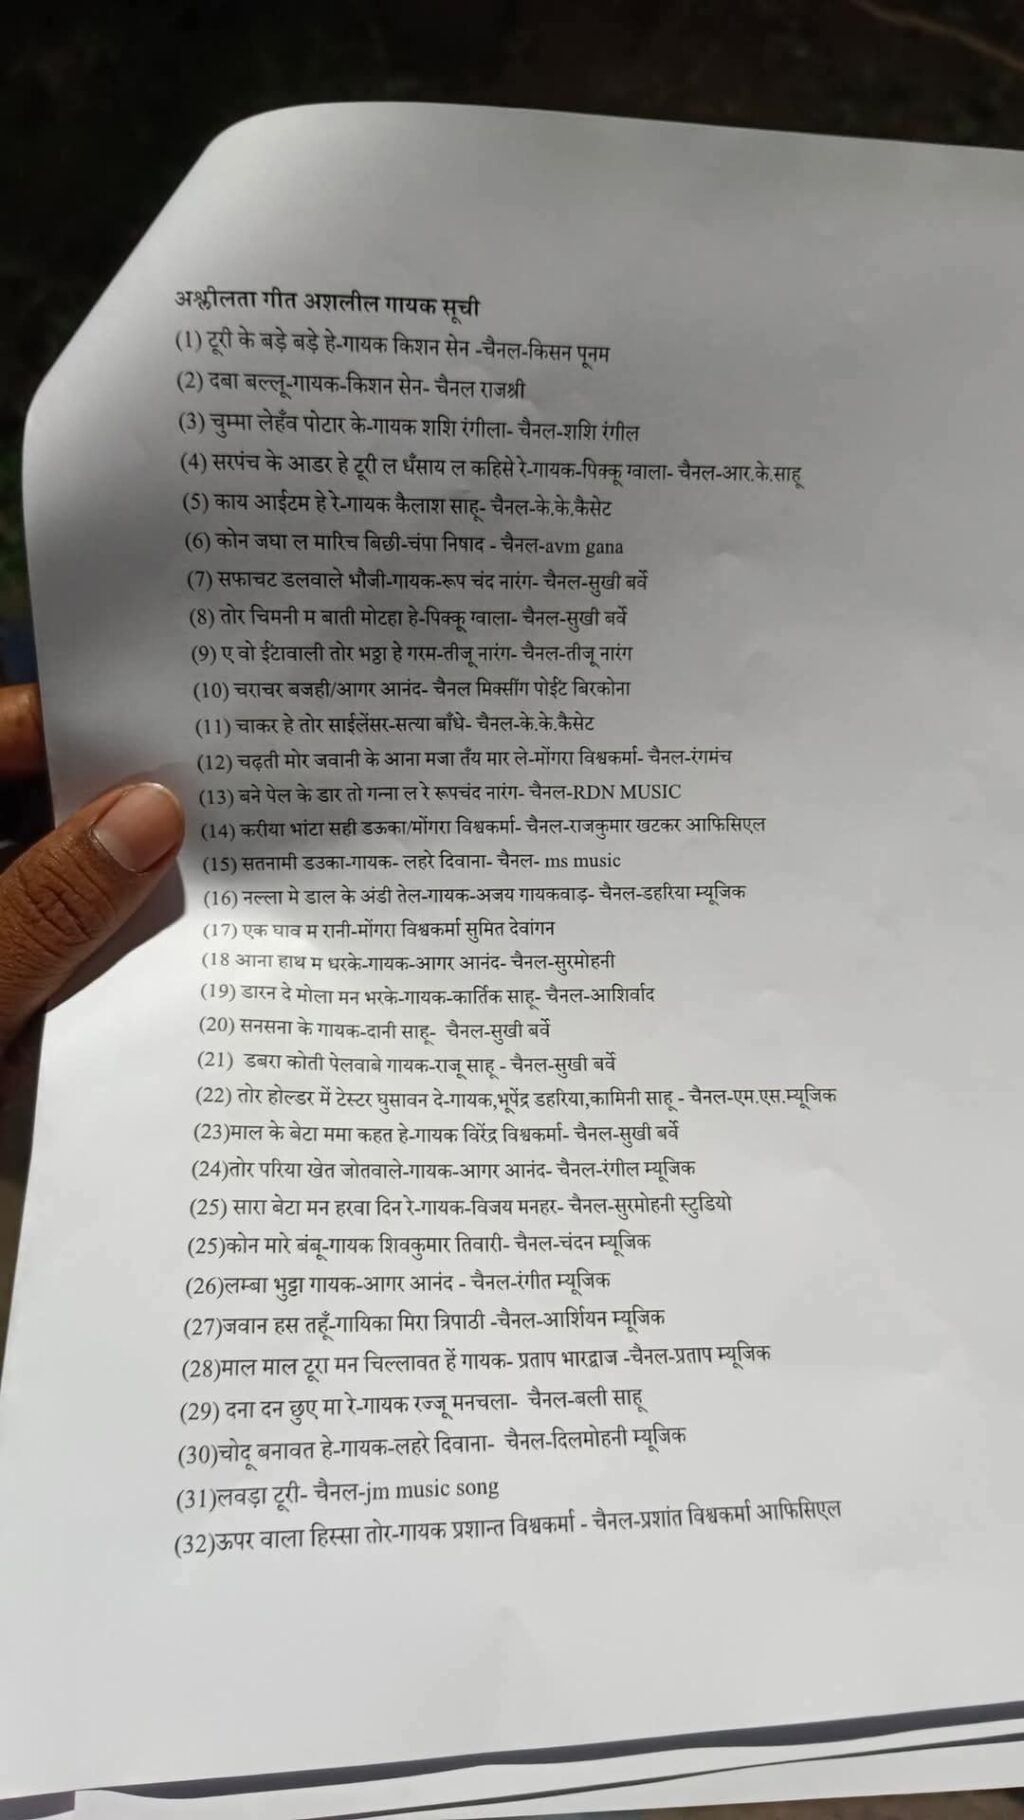 अश्लीलता गीत अशलील गायक सूची
(1) टूरी के बड़े बड़े हे-गायक किशन सेन -चैनल-किसन पूनम
(2) दबा बल्लू-गायक-किशन सेन- चैनल राजश्री
(3) चुम्मा लेहँव पोटार के-गायक शशि रंगीला- चैनल-शशि रंगील
(4) सरपंच के आडर हे टूरी ल धँसाय ल कहिसे रे-गायक-पिक्कू ग्वाला- चैनल-आर.के.साहू
(5) काय आईटम हे रे-गायक कैलाश साहू- चैनल-के.के.कैसेट
(6) कोन जघा ल मारिच बिछी-चंपा निषाद - चैनल-avm gana
(7) सफाचट डलवाले भौजी-गायक-रूप चंद नारंग- चैनल-सुखी बर्वे
(8) तोर चिमनी म बाती मोटहा हे-पिक्कू ग्वाला- चैनल-सुखी बर्वे
(9) ए वो ईटावाली तोर भट्ठा हे गरम-तीजू नारंग- चैनल-तीजू नारंग
(10) चराचर बजही/आगर आनंद- चैनल मिक्सींग पोईट बिरकोना
(11) चाकर हे तोर साईलेंसर-सत्या बाँधे- चैनल-के.के.कैसेट
(12) चढ़ती मोर जवानी के आना मजा तँय मार ले-मोंगरा विश्वकर्मा- चैनल-रंगमंच
(13) बने पेल के डार तो गन्ना ल रे रूपचंद नारंग- चैनल-RDN MUSIC
(14) करीया भांटा सही डऊका/मोंगरा विश्वकर्मा- चैनल-राजकुमार खटकर आफिसिएल
(15) सतनामी डउका-गायक- लहरे दिवाना- चैनल- ms music
(16) नल्ला मे डाल के अंडी तेल-गायक-अजय गायकवाड़- चैनल-डहरिया म्यूजिक
(17) एक घाव म रानी-मोंगरा विश्वकर्मा सुमित देवांगन
(18 आना हाथ म धरके-गायक-आगर आनंद- चैनल-सुरमोहनी
(19) डारन दे मोला मन भरके-गायक-कार्तिक साहू- चैनल-आशिर्वाद
(20) सनसना के गायक-दानी साहू- चैनल-सुखी बर्वे
(21) डबरा कोती पेलवाबे गायक-राजू साहू - चैनल-सुखी बर्वे
(22) तोर होल्डर में टेस्टर घुसावन दे-गायक,भूपेंद्र डहरिया,कामिनी साहू - चैनल-एम.एस.म्यूजिक
(23)माल के बेटा ममा कहत हे-गायक विरेंद्र विश्वकर्मा- चैनल-सुखी बर्वे
(24)तोर परिया खेत जोतवाले-गायक-आगर आनंद- चैनल-रंगील म्यूजिक
(25) सारा बेटा मन हरवा दिन रे-गायक-विजय मनहर- चैनल-सुरमोहनी स्टुडियो
(25)कोन मारे बंबू-गायक शिवकुमार तिवारी- चैनल-चंदन म्यूजिक
(26)लम्बा भुट्टा गायक-आगर आनंद - चैनल-रंगीत म्यूजिक
(27)जवान हस तहूँ-गायिका मिरा त्रिपाठी -चैनल-आर्शियन म्यूजिक
(28)माल माल टूरा मन चिल्लावत हें गायक- प्रताप भारद्वाज -चैनल-प्रताप म्यूजिक
(29) दना दन छुए मा रे-गायक रज्जू मनचला- चैनल-बली साहू
(30)चोदू बनावत हे-गायक-लहरे दिवाना- चैनल-दिलमोहनी म्यूजिक
(31)लवड़ा टूरी- चैनल-jm music song
(32)ऊपर वाला हिस्सा तोर-गायक प्रशान्त विश्वकर्मा - चैनल-प्रशांत विश्वकर्मा आफिसिएल